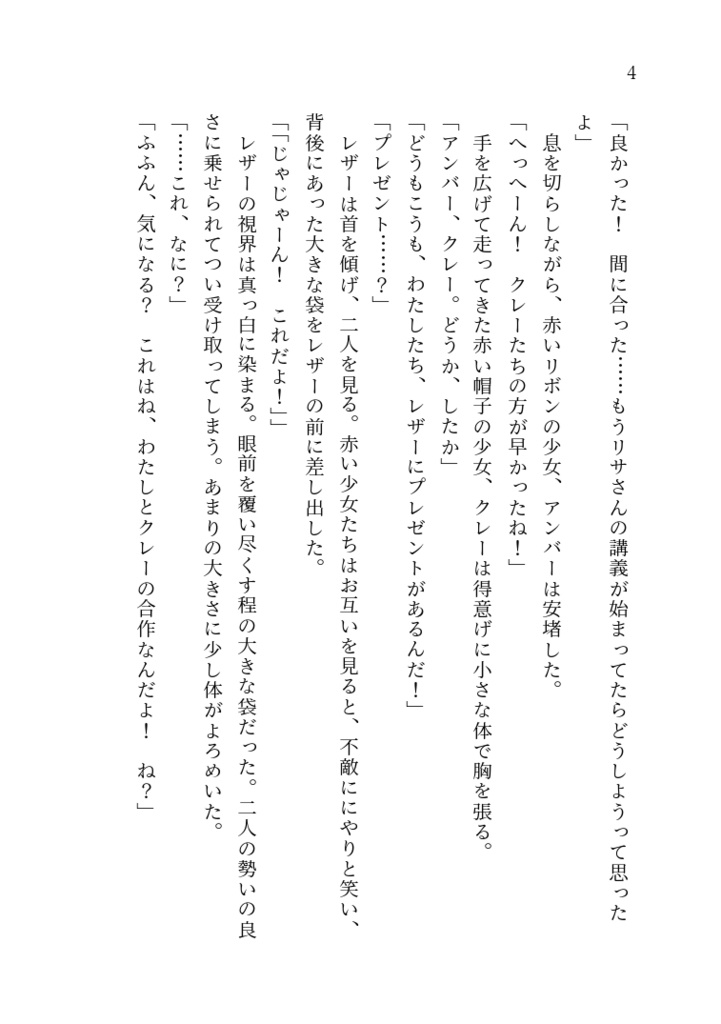 4
「良かった！　間に合った……もうリサさんの講義が始まってたらどうしようって思った
よ」
　息を切らしながら、赤いリボンの少女、アンバーは安堵した。
「へっへーん！　クレーたちの方が早かったね！」
　手を広げて走ってきた赤い帽子の少女、クレーは得意げに小さな体で胸を張る。
「アンバー、クレー。どうか、したか」
「どうもこうも、わたしたち、レザーにプレゼントがあるんだ！」
「プレゼント……？」
　レザーは首を傾げ、二人を見る。赤い少女たちはお互いを見ると、不敵ににやりと笑い、
背後にあった大きな袋をレザーの前に差し出した。
「「じゃじゃーん！　これだよ！」」
　レザーの視界は真っ白に染まる。眼前を覆い尽くす程の大きな袋だった。二人の勢いの良
さに乗せられてつい受け取ってしまう。あまりの大きさに少し体がよろめいた。
「……これ、なに？」
「ふふん、気になる？　これはね、わたしとクレーの合作なんだよ！　ね？」